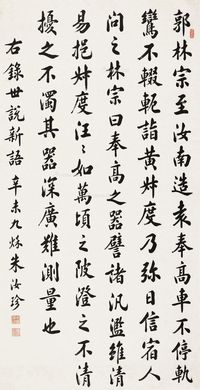 郭林宗至汝南造袁奉高車不停軌
鸞不輟軛詣黃叔度乃弥日信宿人
問之林宗曰奉高之器譬諸汎濫雖清
易挹叔度汪汪如萬頃之陂澄之不清
擾之不濁其器深廣難測量也
右錄世說新語 辛未九秋 朱汝珍